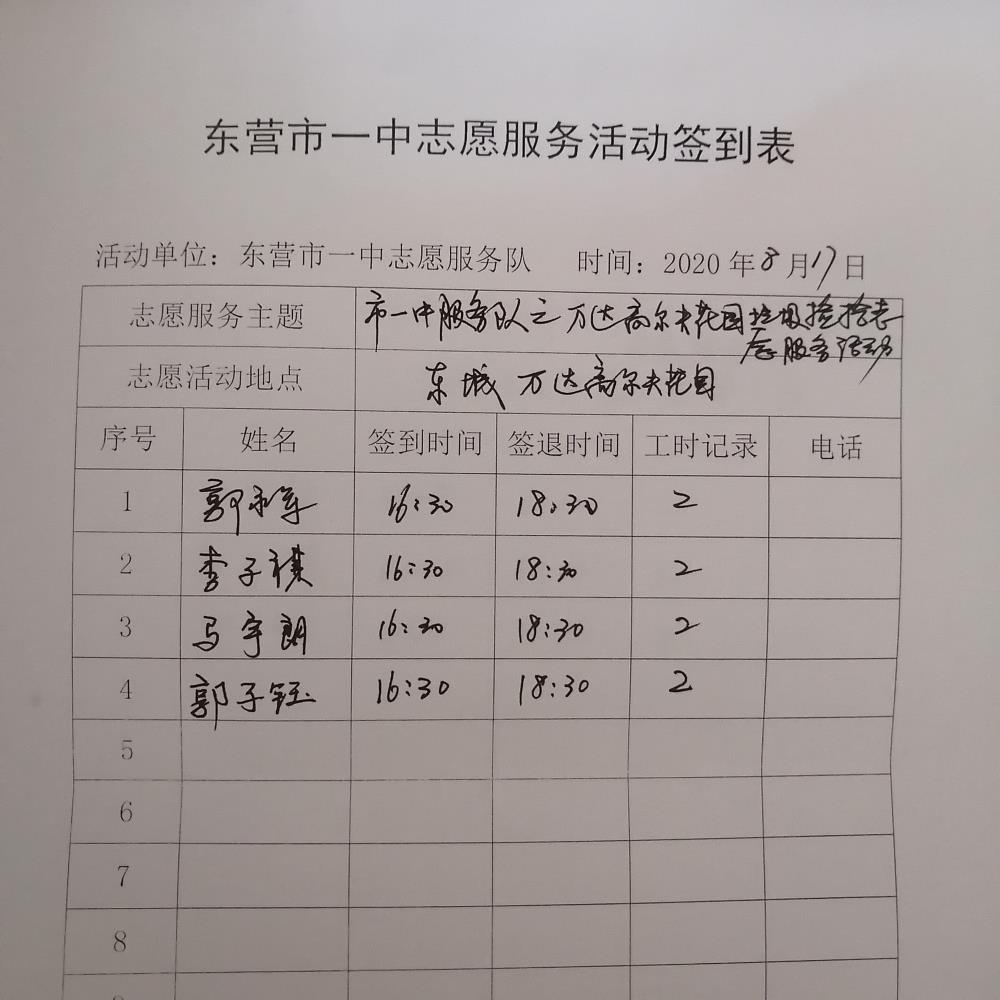 东营市一中志愿服务活动签到表
活动单位：东营市一中志愿服务队 时间：2020年8月17日
志愿服务主题 市一中服务队之万达高尔夫花园垃圾捡拾志
愿服务活动
志愿活动地点 东城 万达高尔夫花园
序号 姓名 签到时间 签退时间 工时记录 电话
1 郭永军 16:30 18:30 2
2 李子祺 16:30 18:30 2
3 马宇朗 16:30 18:30 2
4 郭子钰 16:30 18:30 2
5
6
7
8